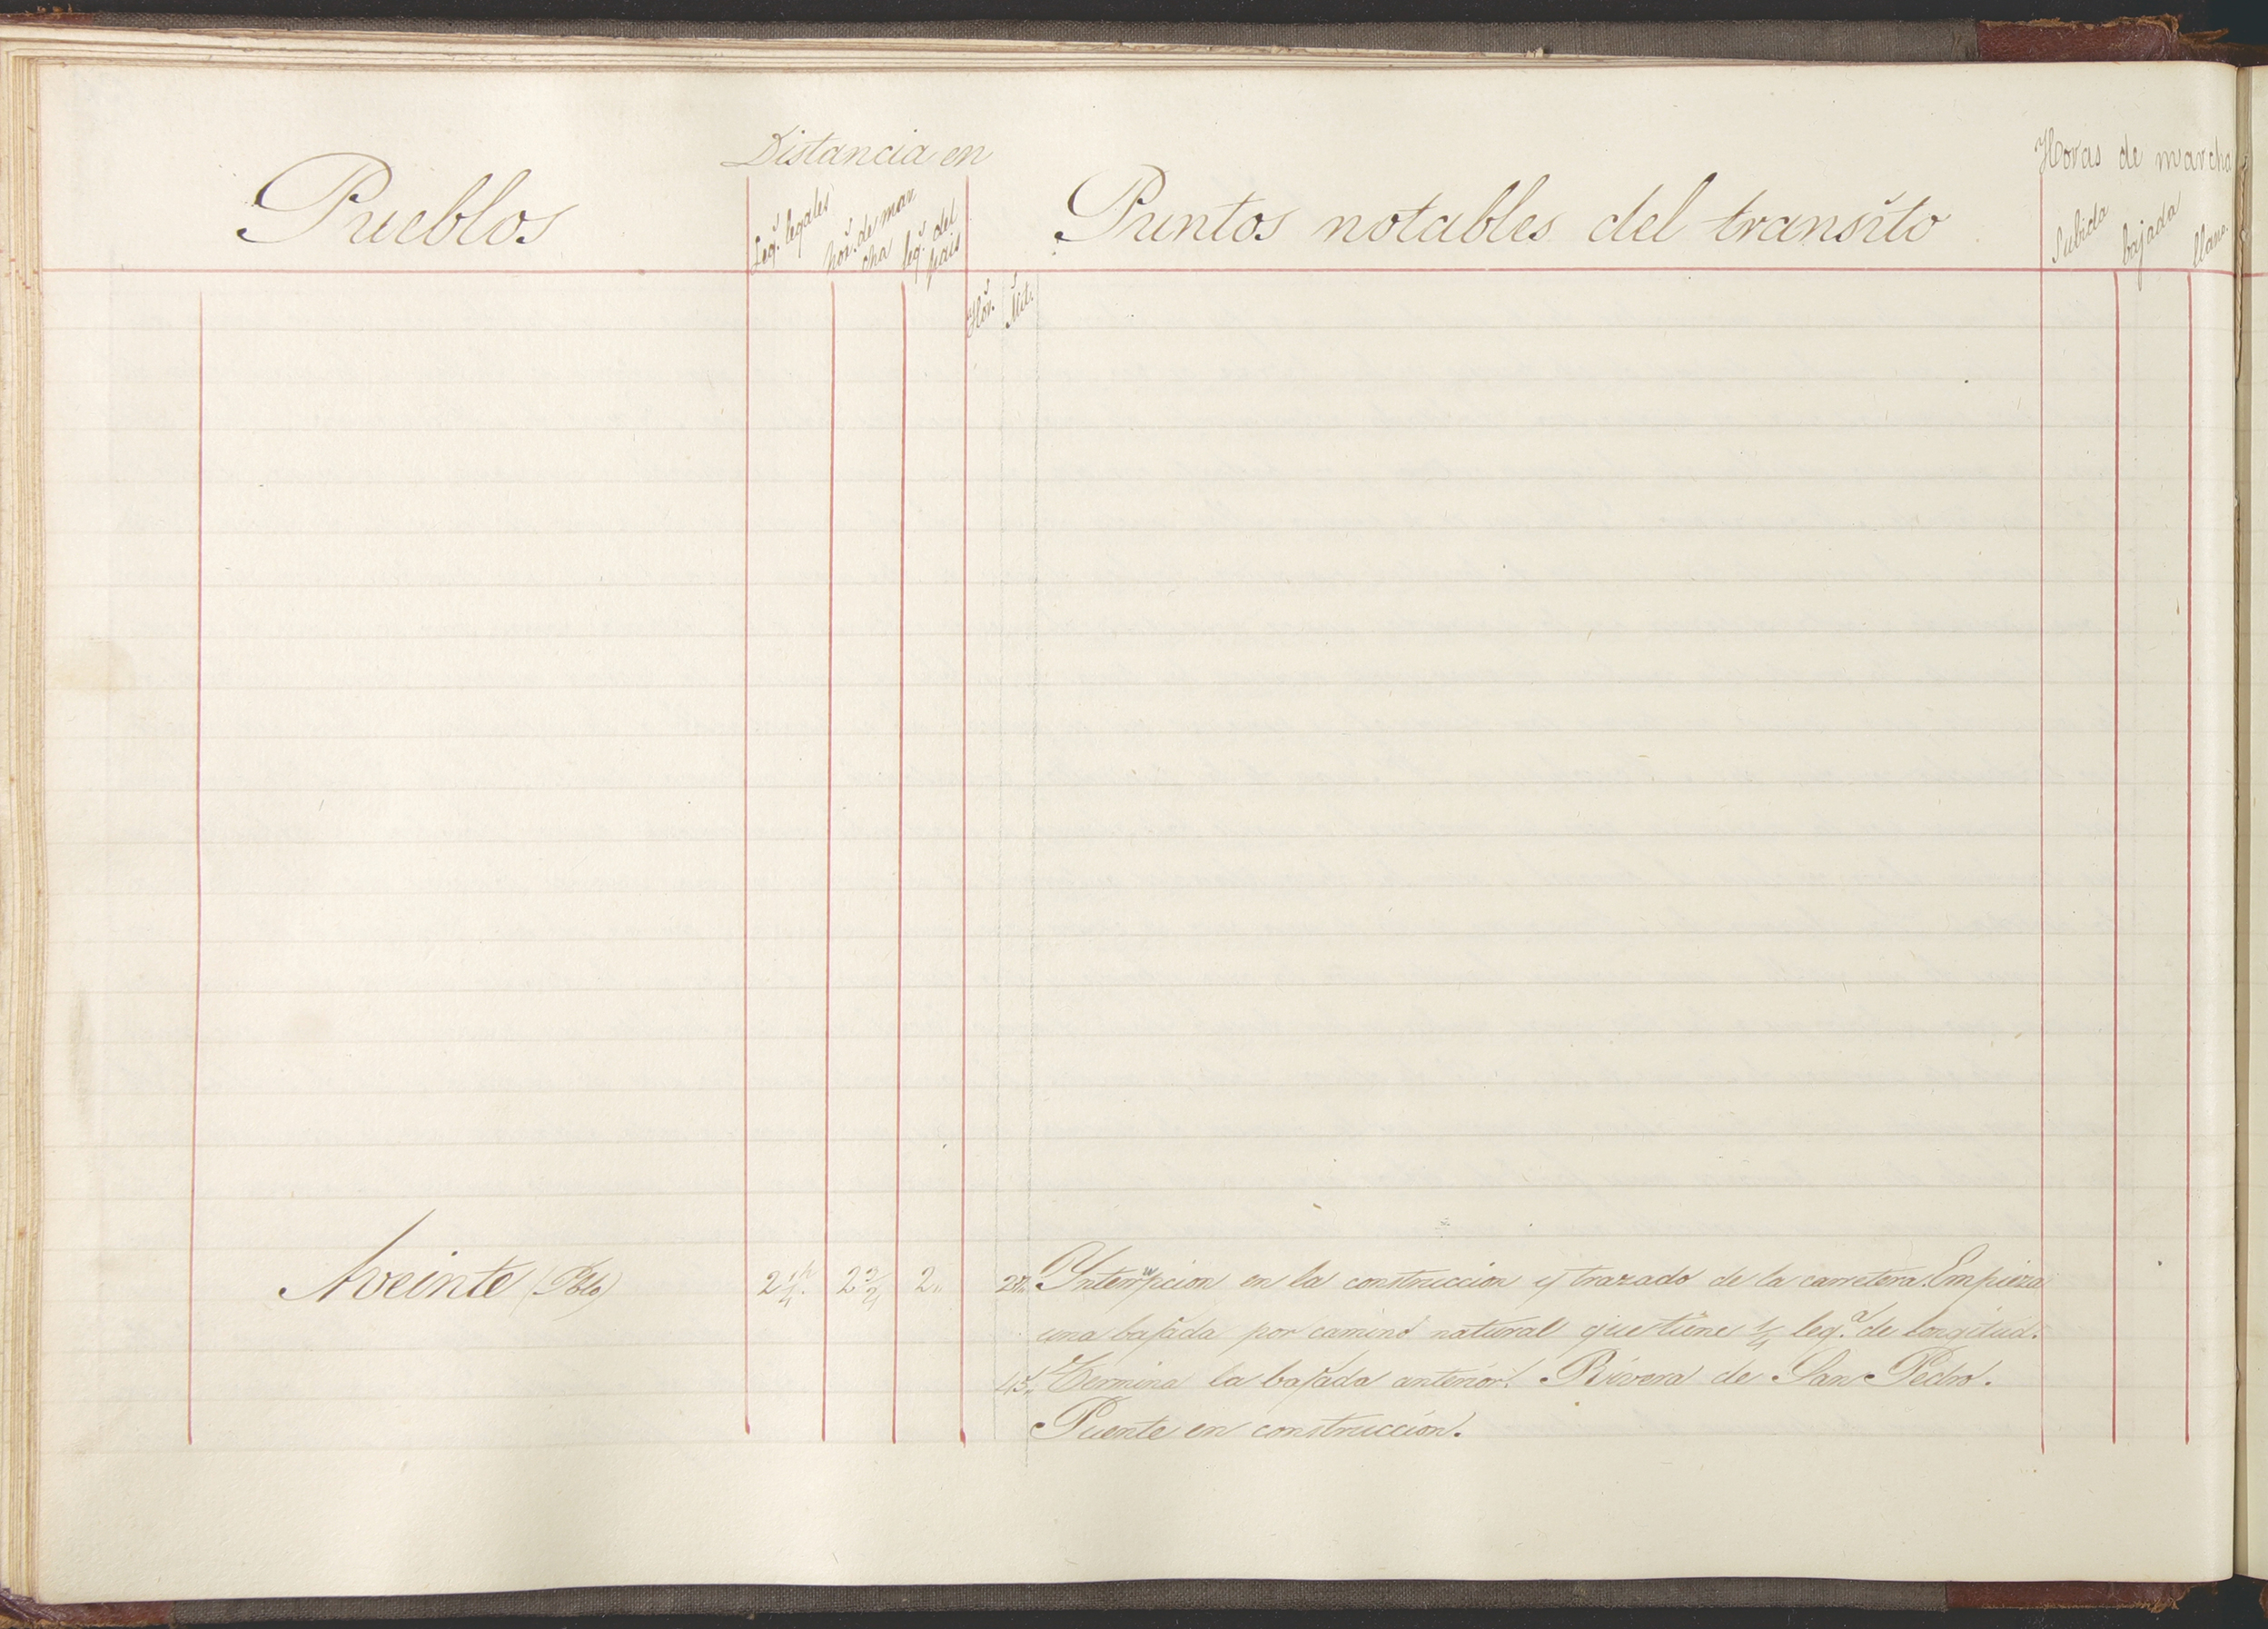 Distancia en
Horas de marcha
Pueblos
Leg.s legales
hor.s de mar
cha
leg.s del
pais
Puntos notables del transito
Subida
bajada
llano.
Hor.s
Mit.s
Aveinte (Pblo)
2 1/4
2 3/4
2"
Interrupcion en la construccion y trazado de la carretera. Empieza
una bajada por camino natural que tiene 1/4 leg.a de longitud.
45" Termina la bajada anterior. Rivera de San Pedro.
Puente en construccion.